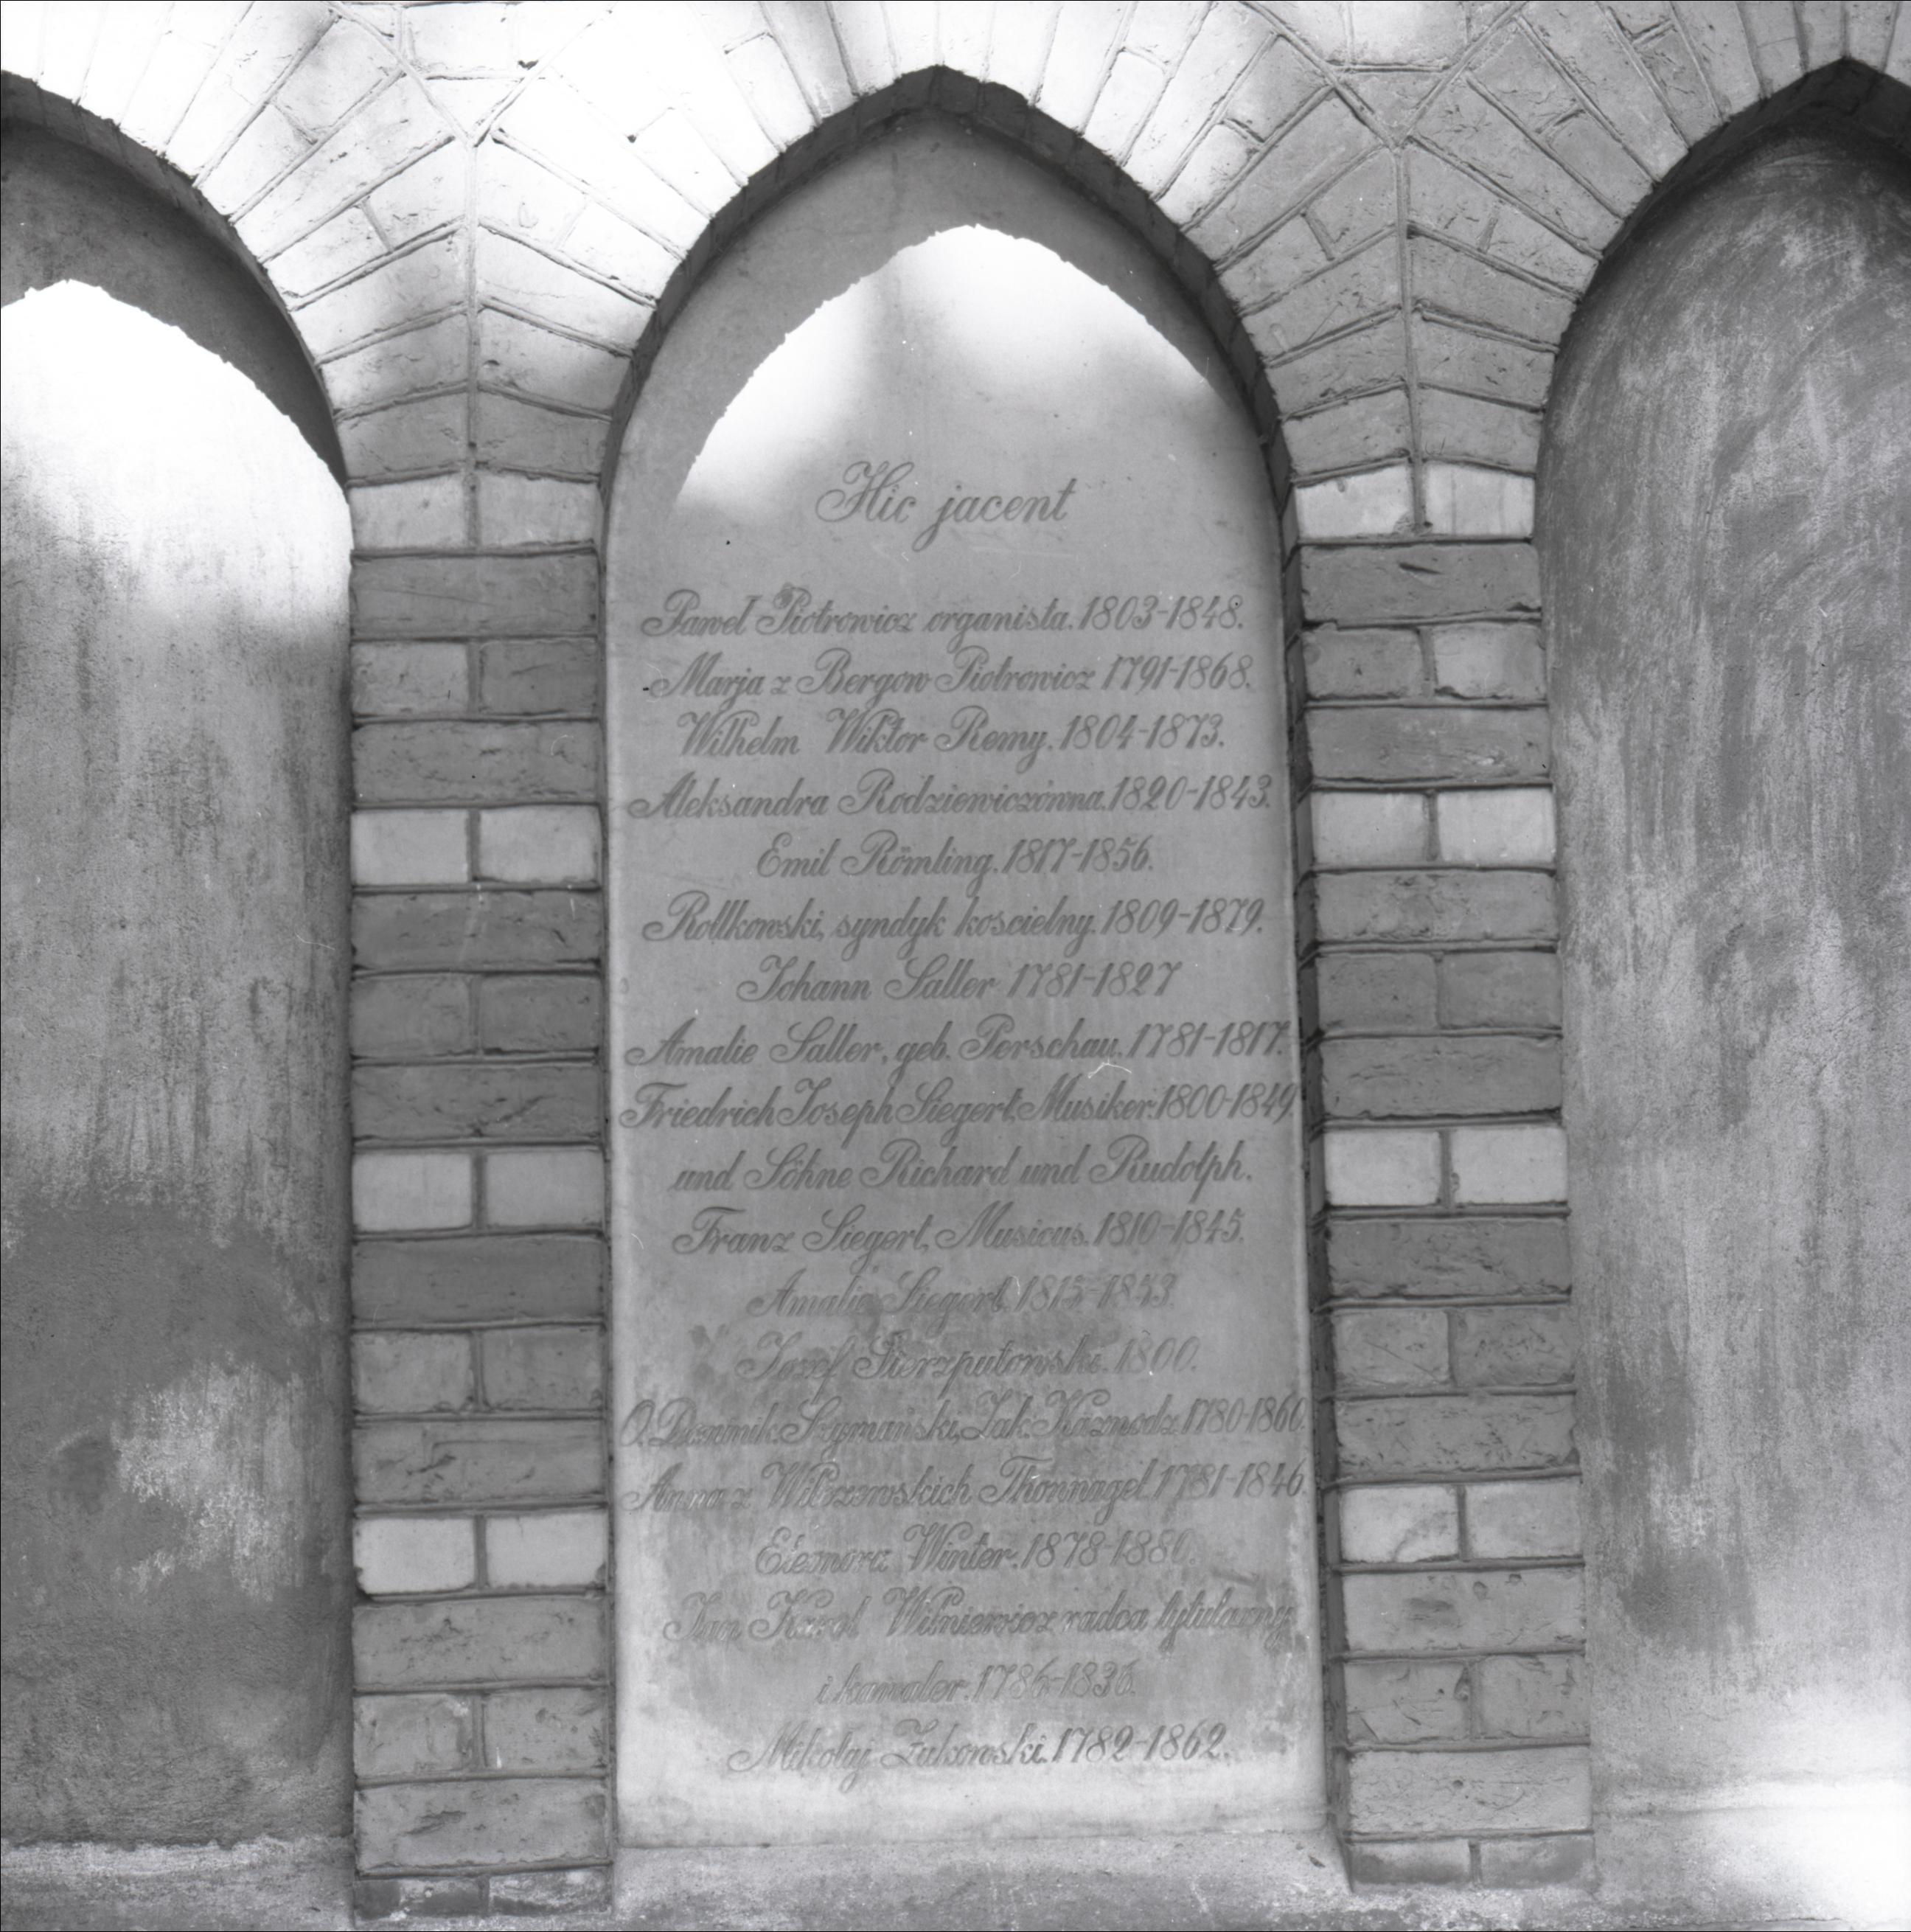 Hic jacent
Paweł Piotrowicz organista. 1803-1848.
Marja z Bergow Piotrowicz 1791-1868.
Wilhelm Wiktor Remy. 1804-1873.
Aleksandra Rodziewiczówna. 1820-1843.
Emil Römling. 1817-1856.
Rollkowski, syndyk koscielny. 1809-1879.
Johann Saller 1781-1827
Amalie Saller, geb. Perschau. 1781-1817.
Friedrich Joseph Siegert, Musiker. 1800-1849.
und Söhne Richard und Rudolph.
Franz Siegert, Musicus. 1810-1845.
Amalie Siegert. 1815-1853.
Jozef Pierzputowski. 1800.
O. Dominik. Szymański, Zak. Kaznodz. 1780-1860.
Anna z Wilczewskich Thonnagel. 1781-1846.
Eleonora Winter. 1878-1880.
Jan Karol Wilniewicz radca tytularny
i kawaler. 1786-1836.
Mikołaj Żukowski. 1782-1862.